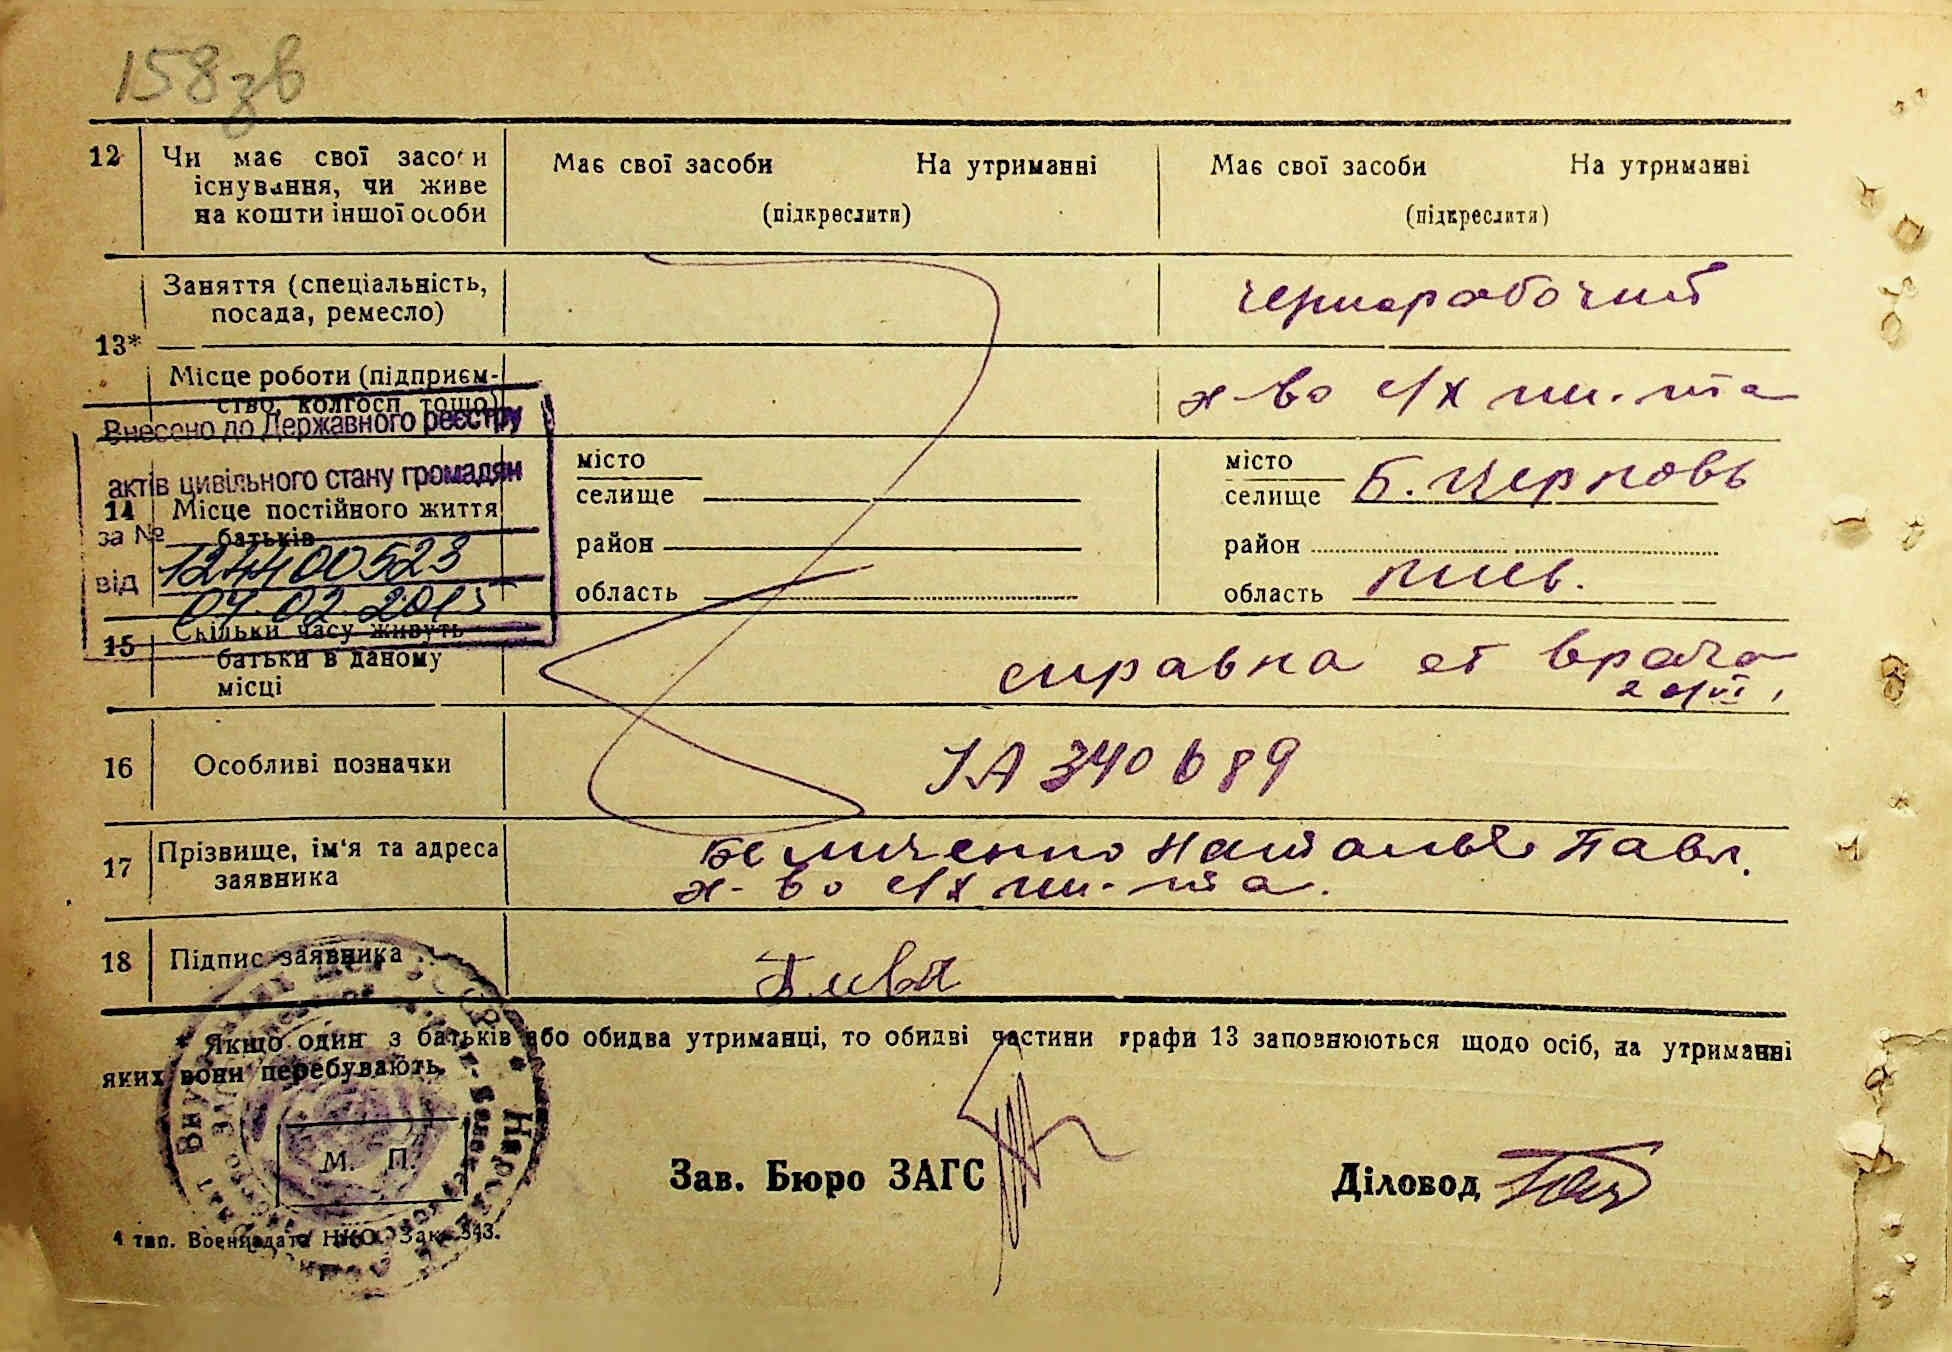 158 зв
12 Чи має свої засоби Має свої засоби На утриманні Має свої засоби На утриманні
існування, чи живе
на кошти іншої особи (підкреслити) (підкреслити)
Заняття (спеціальність, чернорабочий
посада, ремесло)
13*
Місце роботи (підприєм-
ство, колгосп тощо) х-во с/х ин-та
Внесено до Державного реєстру
актів цивільного стану громадян
за №
від
04.02.2015
14 Місце постійного життя
батьків
місто місто
селище селище Б. Церковь
район район
область область Киев.
15 Скільки часу живуть
батьки в даному
місці
справка от врача
16 Особливі позначки ІА 340689
17 Прізвище, ім'я та адреса
заявника
Наталья Павл.
х-во с/х ин-та.
18 Підпис заявника
Якщо один з батьків або обидва утриманці, то обидві частини графи 13 заповнюються щодо осіб, на утриманні
яких вони перебувають.
М. П.
Зав. Бюро ЗАГС Діловод
4 тип. Воениздата НКО. Зак. 543.